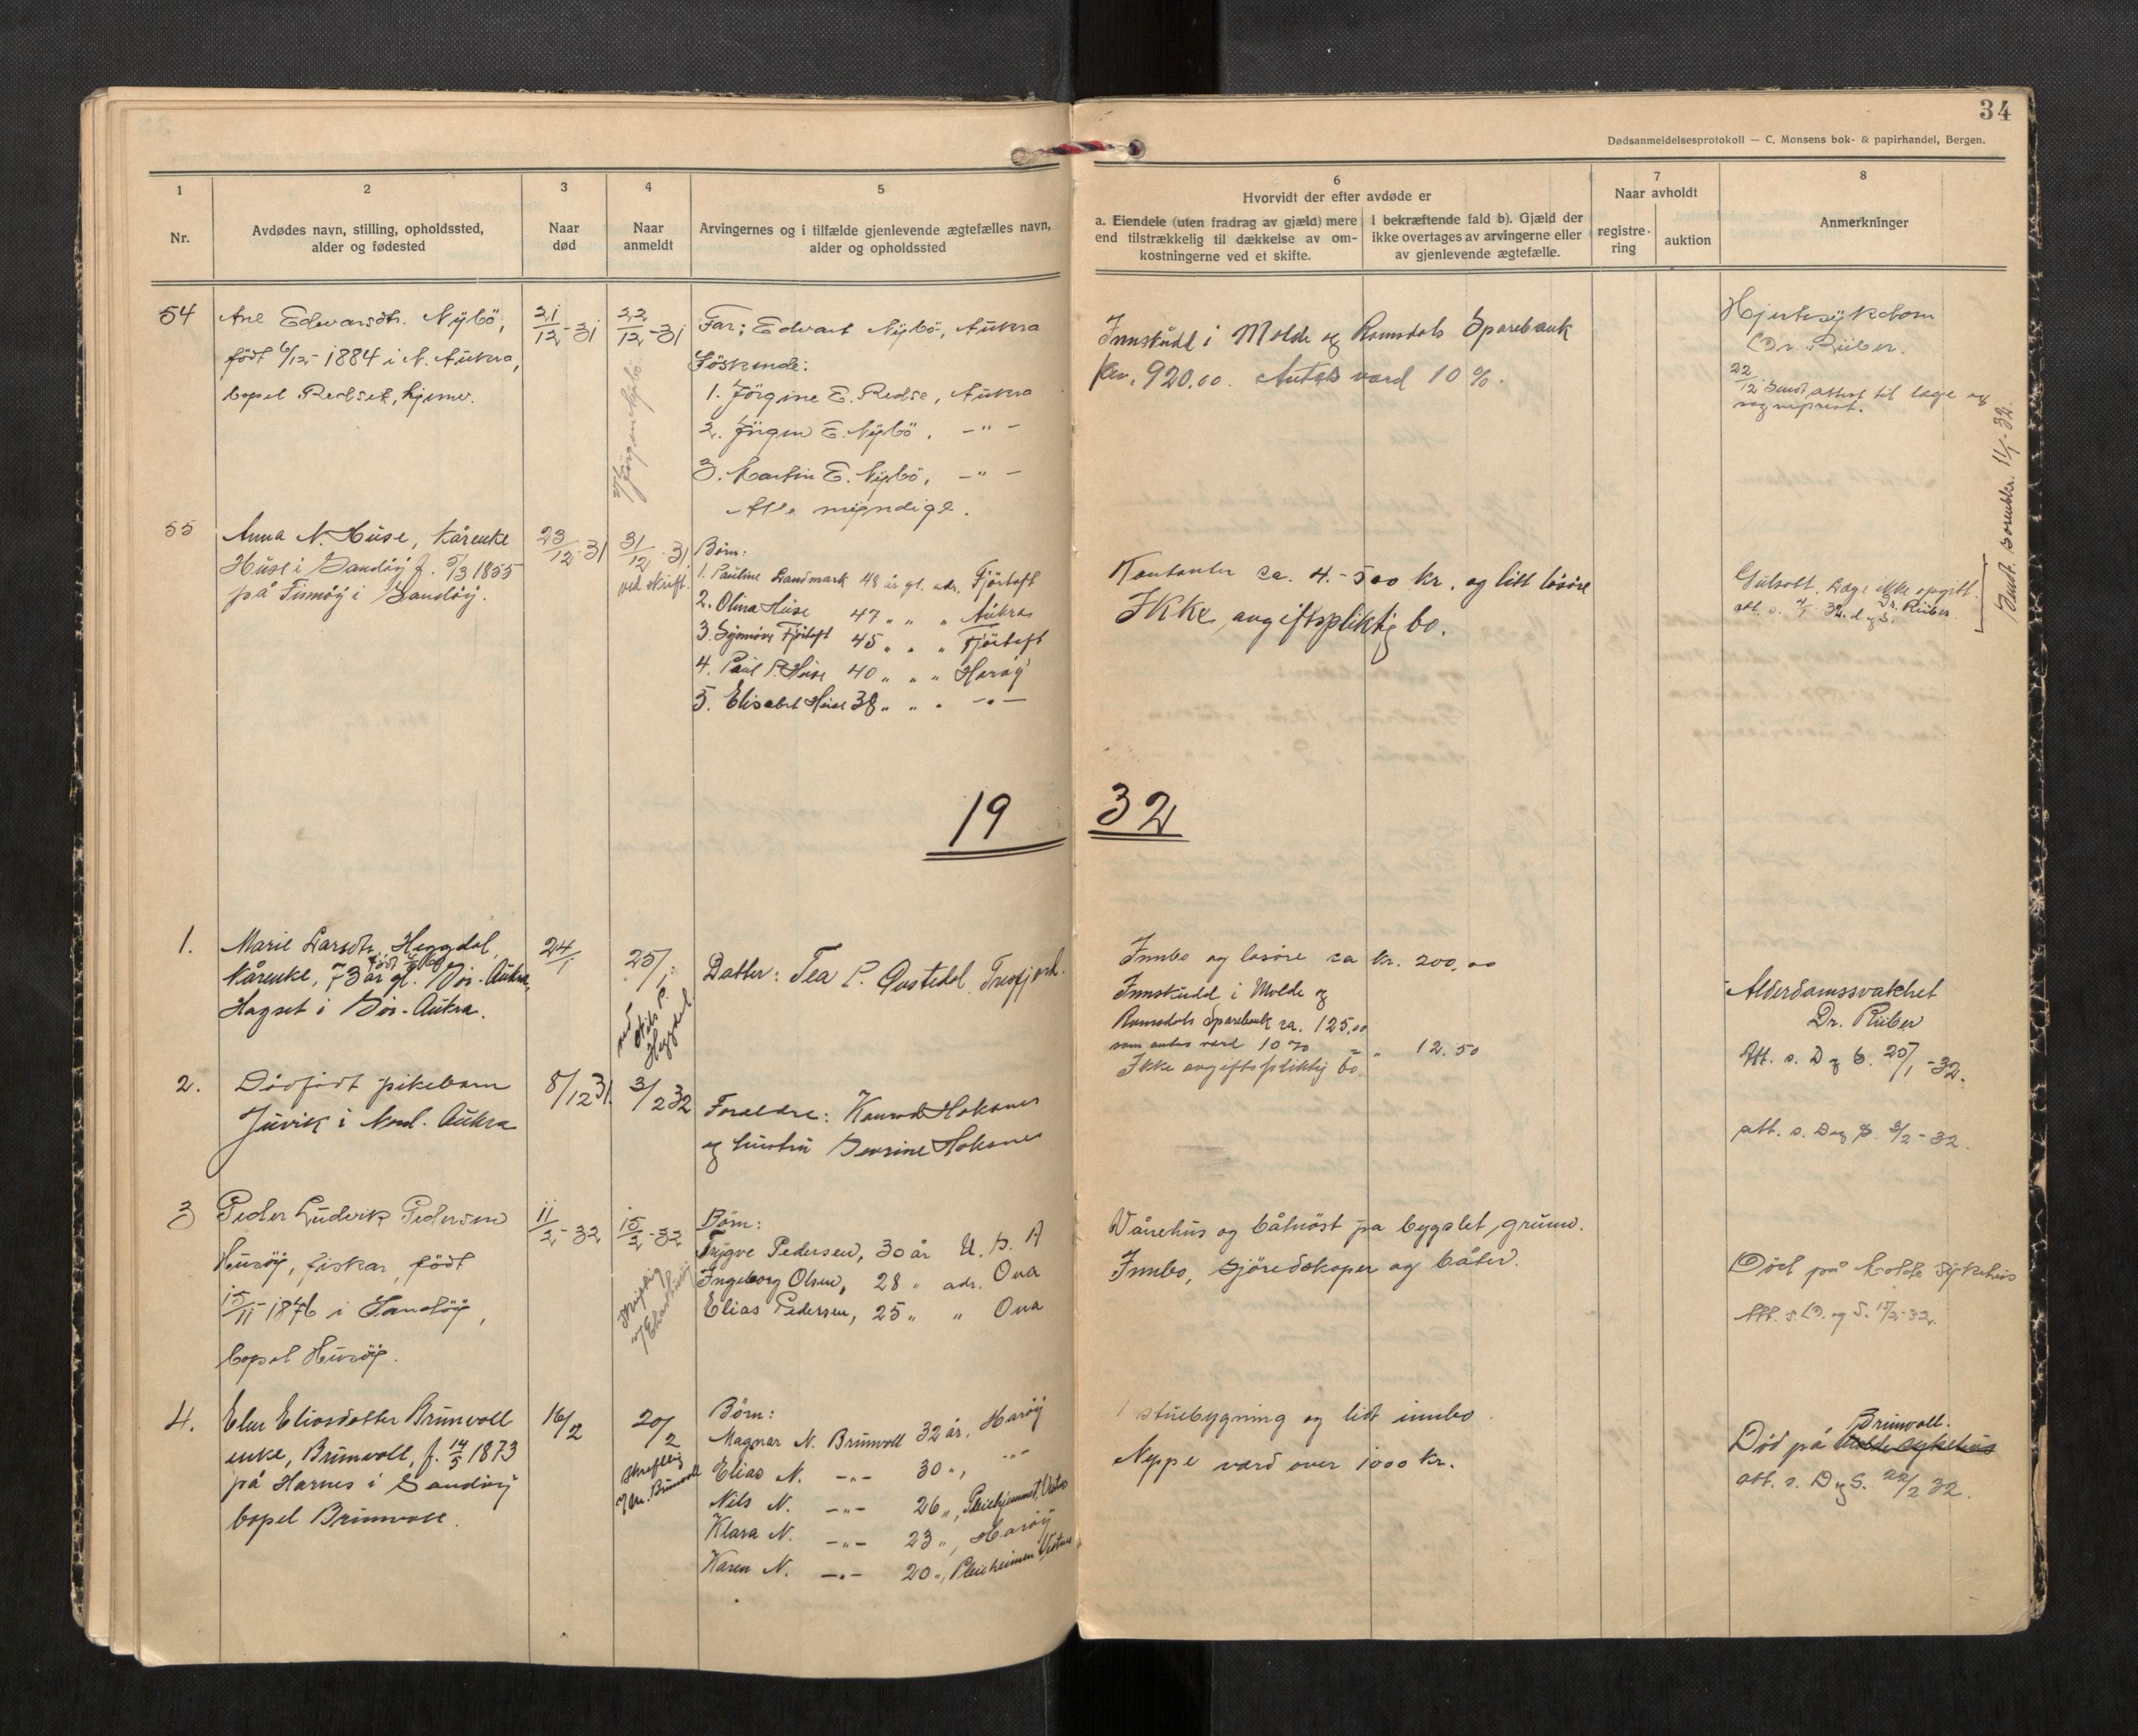 34
Dødsanmeldelsesprotokoll — C. Monsens bok- & papirhandel, Bergen.
1
Nr.
2
Avdødes navn, stilling, opholdssted,
alder og fødested
3
Naar
død
4
Naar
anmeldt
5
Arvingernes og i tilfælde gjenlevende ægtefælles navn,
alder og opholdssted
6
Hvorvidt der efter avdøde er
a. Eiendele (uten fradrag av gjæld) mere
end tilstrækkelig til dækkelse av om-
kostningerne ved et skifte.
I bekræftende fald b). Gjæld der
ikke overtages av arvingerne eller
av gjenlevende ægtefælle.
7
Naar avholdt
registre-
ring
auktion
8
Anmerkninger
54
Ane Edvardsdtr. Nybö,
född 6/12-1884 i N. Aukra,
bopel Redset, hjemv.
21/12-31
22/12-31
Jörgen Nybö
Far: Edvart Nybö, Aukra
Söskende:
1. Jörgine E. Redse, Aukra
2. Jörgen E. Nybö, -"-
3. Martin E. Nybö, -"-
Alle myndige.
Innskudd i Molde og Romsdals Sparebank
kr. 920,00. Antas verd 10%.
Hjertesykdom
Dr. Rüber.
22/12 Sendt attest til læge og
sogneprest.
55
Anna N. Huse, kårenke
Huse i Sandöy f. 5/3 1855
på Finnöy i Sandöy.
23/12-31
31/12-31
ved skrift.
Börn:
1. Pauline Landmark 48 år gl. adr. Fjörtoft
2. Olina Huse 47 " " " Aukra
3. Synnöve Fjörtoft 45 " " " Fjörtoft
4. Paul P. Huse 40 " " " Haröy
5. Elisabet Huse 38 " " " -"-
Kontanter ca. 4-500 kr. og litt lösöre
Ikke avgiftspliktig bo.
Gulsott. Læge ikke opgitt.
Dr. Rüber
att. s. 4/1 32. D og S.
Sendt Sorenskr. 11/1-32.
1932
1.
Marie Larsdtr. Heggdal,
kårenke, 73 år gl. Sör-Aukra,
Hagset i Sör-Aukra.
24/1
25/1
ved Nils P.
Heggdal.
Datter: Tea P. Ovstedal, Tresfjord.
Innbo og lösöre ca kr. 200,00
Innskudd i Molde og
Romsdals Sparebank ca. 125,00
som antas verd 10% - " 12.50
Ikke avgiftspliktig bo.
Alderdomssvakhet
Dr. Rüber
Att. s. D og S. 25/1-32.
2.
Dödfödt pikebarn
Juvik i Nord-Aukra
8/12 31.
3/2 32
Foreldre: Konrad Hoksnes
og hustru Sevrine Hoksnes
att. s. D og S. 3/2-32.
3
Peder Ludvik Pedersen
Husöy, fiskar, födt
15/11-1876 i Sandöy,
bopel Husöy.
11/2-32
15/2-32
Skriftlig
Börn:
Trygve Pedersen, 30 år U.S.A
Ingeborg Olsen, 28 " adr. Ona
Elias Pedersen, 25 " " Ona
Vånehus og båtnöst på bygslet grunn.
Innbo, sjöredskaper og båter.
Död på Molde Sykehus
Att. s. D. og S. 15/2-32.
4.
Elen Eliasdotter Brunvoll
enke, Brunvoll, f. 14/5 1873
på Harnes i Sandöy
bopel Brunvoll.
16/2
20/2
skriftlig
M. Brunvoll
Börn:
Magnar N. Brunvoll 32 år, Haröy
Elias N. -"- 30 ", -"-
Nils N. -"- 26 ", Pleiehjemmet, Vestnes
Klara N. -"- 23 ", Haröy
Karen N. -"- 20 ", Pleieheimen Vestnes
1 stuebygning og lidt innbo.
Neppe verd over 1000 kr.
Död på Molde sykehus Brunvoll.
att. s. D og S. 22/2 32.